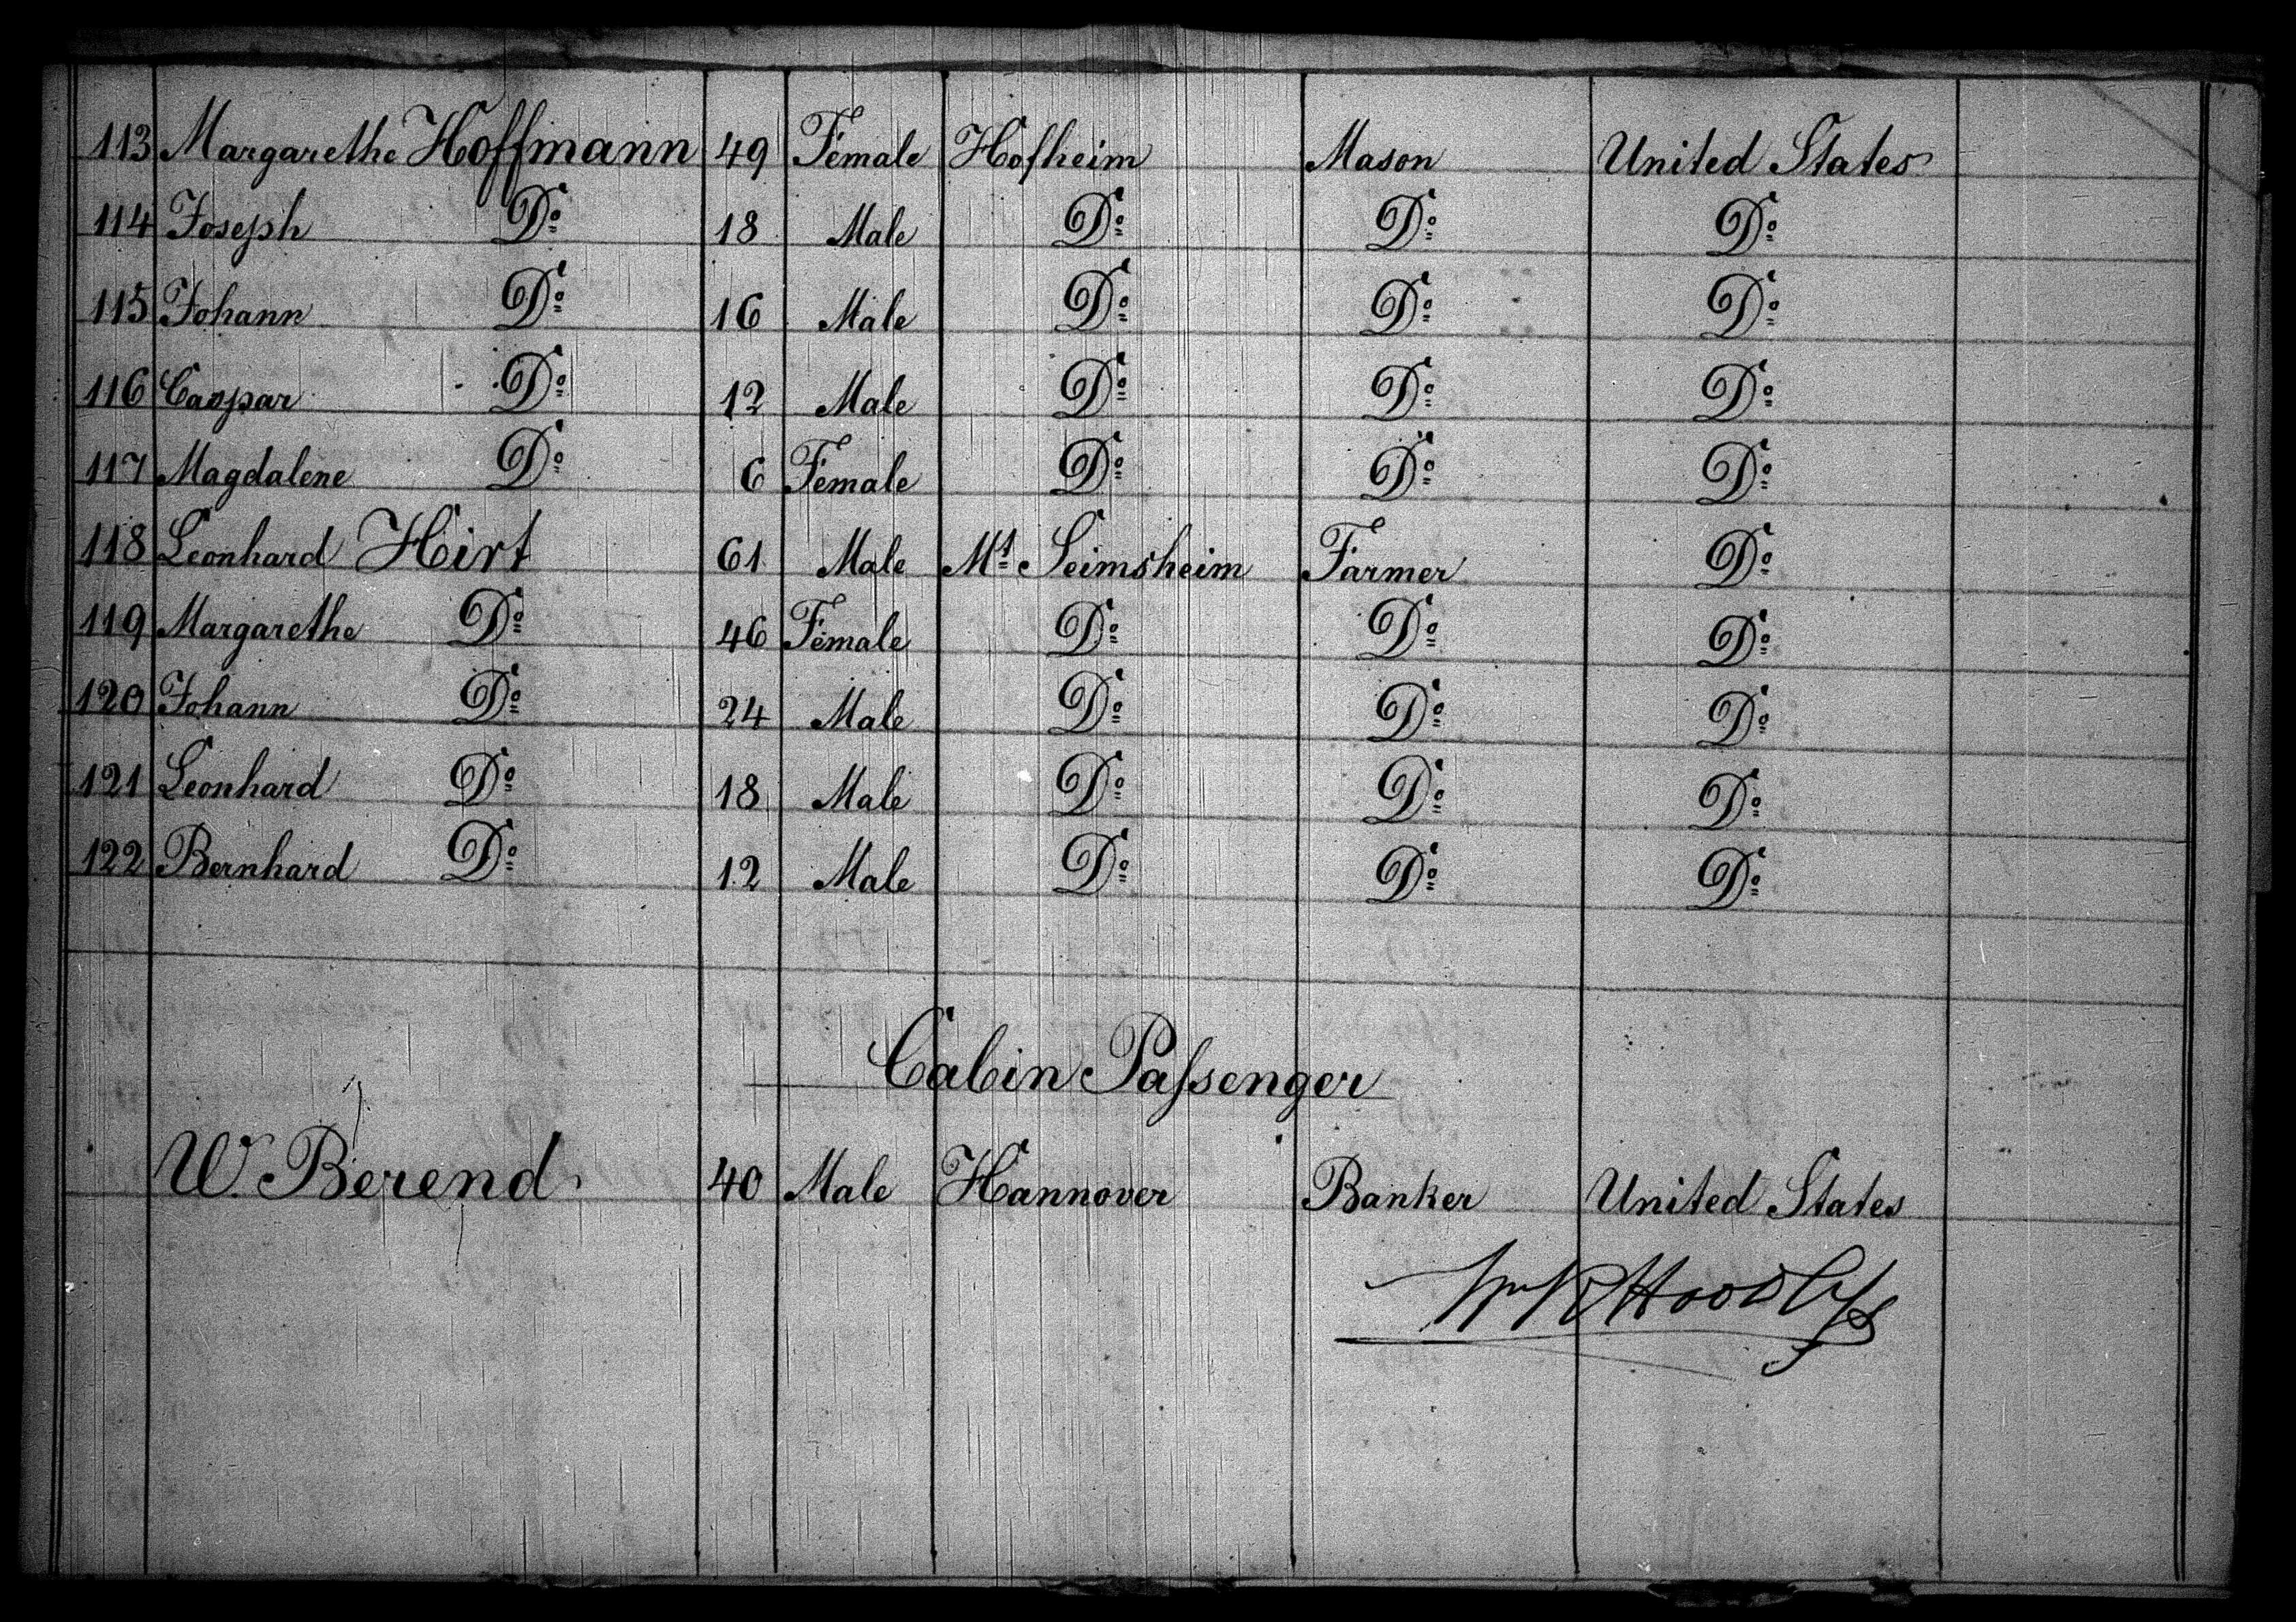 113 Margarethe Hoffmann 49 Female Hofheim Mason United States
114 Joseph Do 18 Male Do Do Do
115 Johann Do 16 Male Do Do Do
116 Caspar Do 12 Male Do Do Do
117 Magdalene Do 6 Female Do Do Do
118 Leonhard Hirt 61 Male Mt Seimsheim Farmer Do
119 Margarethe Do 46 Female Do Do Do
120 Johann Do 24 Male Do Do Do
121 Leonhard Do 18 Male Do Do Do
122 Bernhard Do 12 Male Do Do Do
Cabin Paſsenger
W. Berend 40 Male Hannover Banker United States